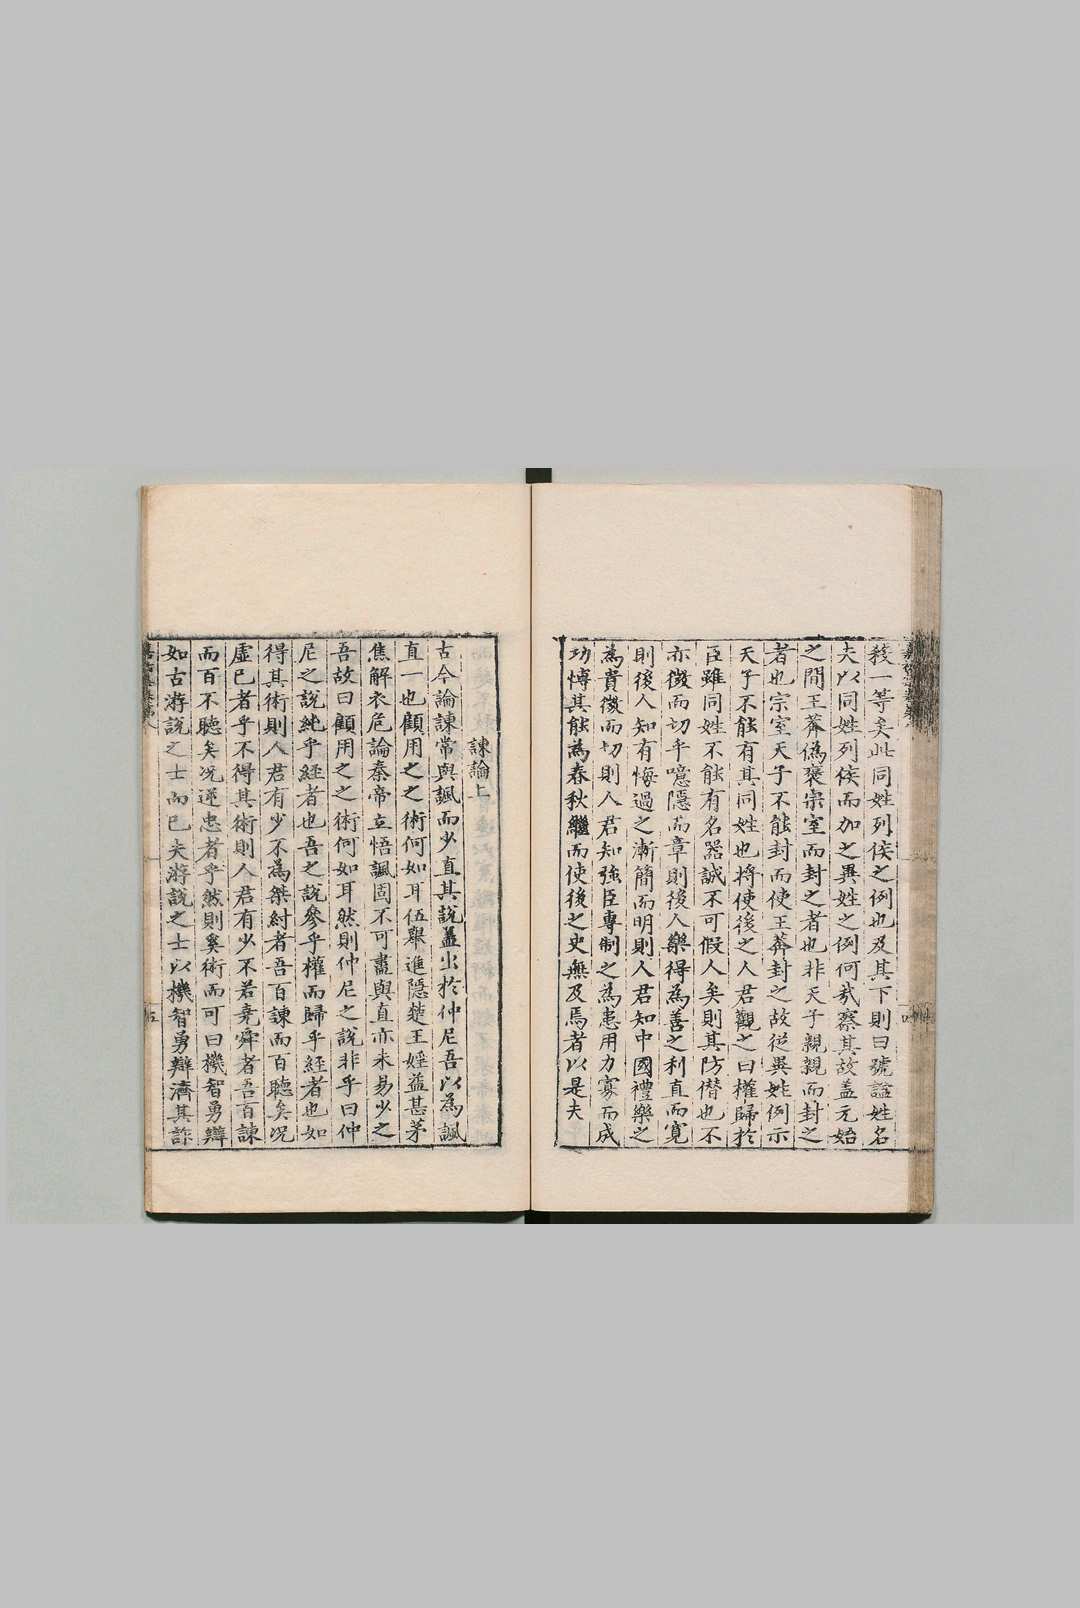 殺一等矣此同姓列侯之例也及其下則曰號謚姓名
夫以同姓列侯而加之異姓之例何哉察其故盖元始
之間王莽偽褒宗室而封之者也非天子親親而封之
者也宗室天子不能封而使王莽封之故從異姓例示
天子不能有其同姓也將使後之人君觀之曰權歸於
臣雖同姓不能有名器誠不可假人矣則其防僣也不
亦微而切乎噫隱而章則後人樂得為善之利直而寛
則後人知有悔過之漸簡而明則人君知中國禮樂之
為貴微而切則人君知強臣專制之為患用力寡而成
功博其能為春秋繼而使後之史無及焉者以是夫
諫論上
古今論諫常與諷而少直其說盖出於仲尼吾以為諷
直一也顧用之之術何如耳伍舉進隱楚王婬益甚茅
焦解衣危論秦帝立悟諷固不可盡與直亦未易少之
吾故曰顧用之之術何如耳然則仲尼之說非乎曰仲
尼之說純乎經者也吾之說參乎權而歸乎經者也如
得其術則人君有少不為桀紂者吾百諫而百聽矣況
虛已者乎不得其術則人君有少不若堯舜者吾百諫
而百不聽矣況逆忠者乎然則奚術而可曰機智勇辯
如古游說之士而已夫游說之士以機智勇辯濟其詐